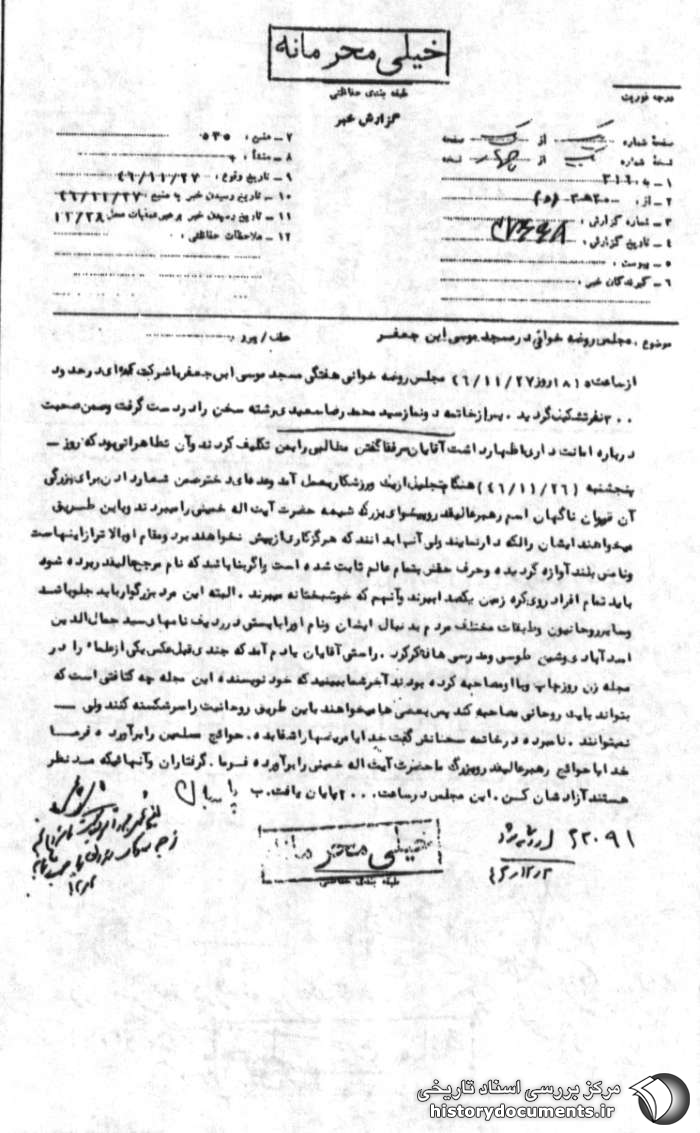 خیلی محرمانه
طبقه بندی حفاظتی
گزارش خبر
درجه فوریت
صفحه شماره یک از یک صفحه
نسخه شماره یک از چهار نسخه
۱ – به : ۳۱۶
۲ – از : ۲۰ ه ۳ (د)
۳ – شماره گزارش :
۴ – تاریخ گزارش :
۵ – پیوست :
۶ – گیرندگان خبر :
۷ – منبع : ۵۳۵
۸ – منشأ :
۹ – تاریخ وقوع : ۴۶/۱۱/۲۷
۱۰ – تاریخ رسیدن خبر به منبع : ۴۶/۱۱/۲۷
۱۱ – تاریخ رسیدن خبر برهبر عملیات محل : ۱۲/۲۸
۱۲ – ملاحظات حفاظتی :
موضوع : مجلس روضه خوانی در مسجد موسی ابن جعفر
عطف / پیرو
از ساعت ۱۸ روز ۴۶/۱۱/۲۷ مجلس روضه خوانی هفتگی مسجد موسی ابن جعفر با شرکت عده ای در حدود
۲۰۰ نفر تشکیل گردید . پس از خاتمه دو نماز سید محمد رضا سعیدی رشته سخن را در دست گرفت و ضمن صحبت
درباره امانت داری اظهار داشت آقایان مرفقا گفتن مطالبی را بمن تکلیف کردند و آن تظاهراتی بود که روز –
پنجشنبه (۴۶/۱۱/۲۶) هنگام تجلیل از یک ورزشکار بعمل آمد و عده ای در ضمن شعار دادن برای بزرگی
آن قهرمان ناگهان اسم رهبر عالیقدر و پیشوای بزرگ شیعه حضرت آیت اله خمینی را میبردند و باین طریق
میخواهند ایشان را لکه دار نمایند ولی آنها بدانند که هرگز کاری از پیش نخواهند برد و مقام او بالاتر از اینهاست
و نامش بلند آوازه گردیده و حرف حقش بتمام عالم ثابت شده است و اگر بنا باشد که نام مرجع عالیقدر برده شود
باید تمام افراد روی کره زمین بکصد اببرند و آنهم که خوشبختانه میبرند . البته این مرد بزرگوار باید جلو باشد
و سایر روحانیون و طبقات مختلف مردم بدنبال ایشان و نام او را بایستی در ردیف نامهای سید جمال الدین
اسدآبادی و شیخ طوسی و مدرسی ها ذکر کرد . راستی آقایان یادم آمد که چندی قبل عکس یکی از علماء را در
مجله زن روز چاپ و با او مصاحبه کرده بودند آخر شما ببینید که خود نویسنده این مجله چه کثافتی است که
بتواند با یک روحانی مصاحبه کند پس بعضی ها میخواهند باین طریق روحانیت را سرشکسته کنند ولی –
نمیتوانند . نامبرده در خاتمه سخنانش گفت خدایا مریضها را شفا بده . حوائج مسلمین را برآورده فرما
خدایا حوائج رهبر عالیقدر و بزرگ ما حضرت آیت اله خمینی را برآورده فرما . گرفتاران و آنهائیکه مد نظر
هستند آزادشان کن . این مجلس در ساعت ۲۰۰۰ پایان یافت . ب
۶۲۰۹۱
۴۶/۱۲/۲
۱۲/۲
خیلی محرمانه
طبقه بندی حفاظتی
مرکز بررسی اسناد تاریخی
historydocuments.ir